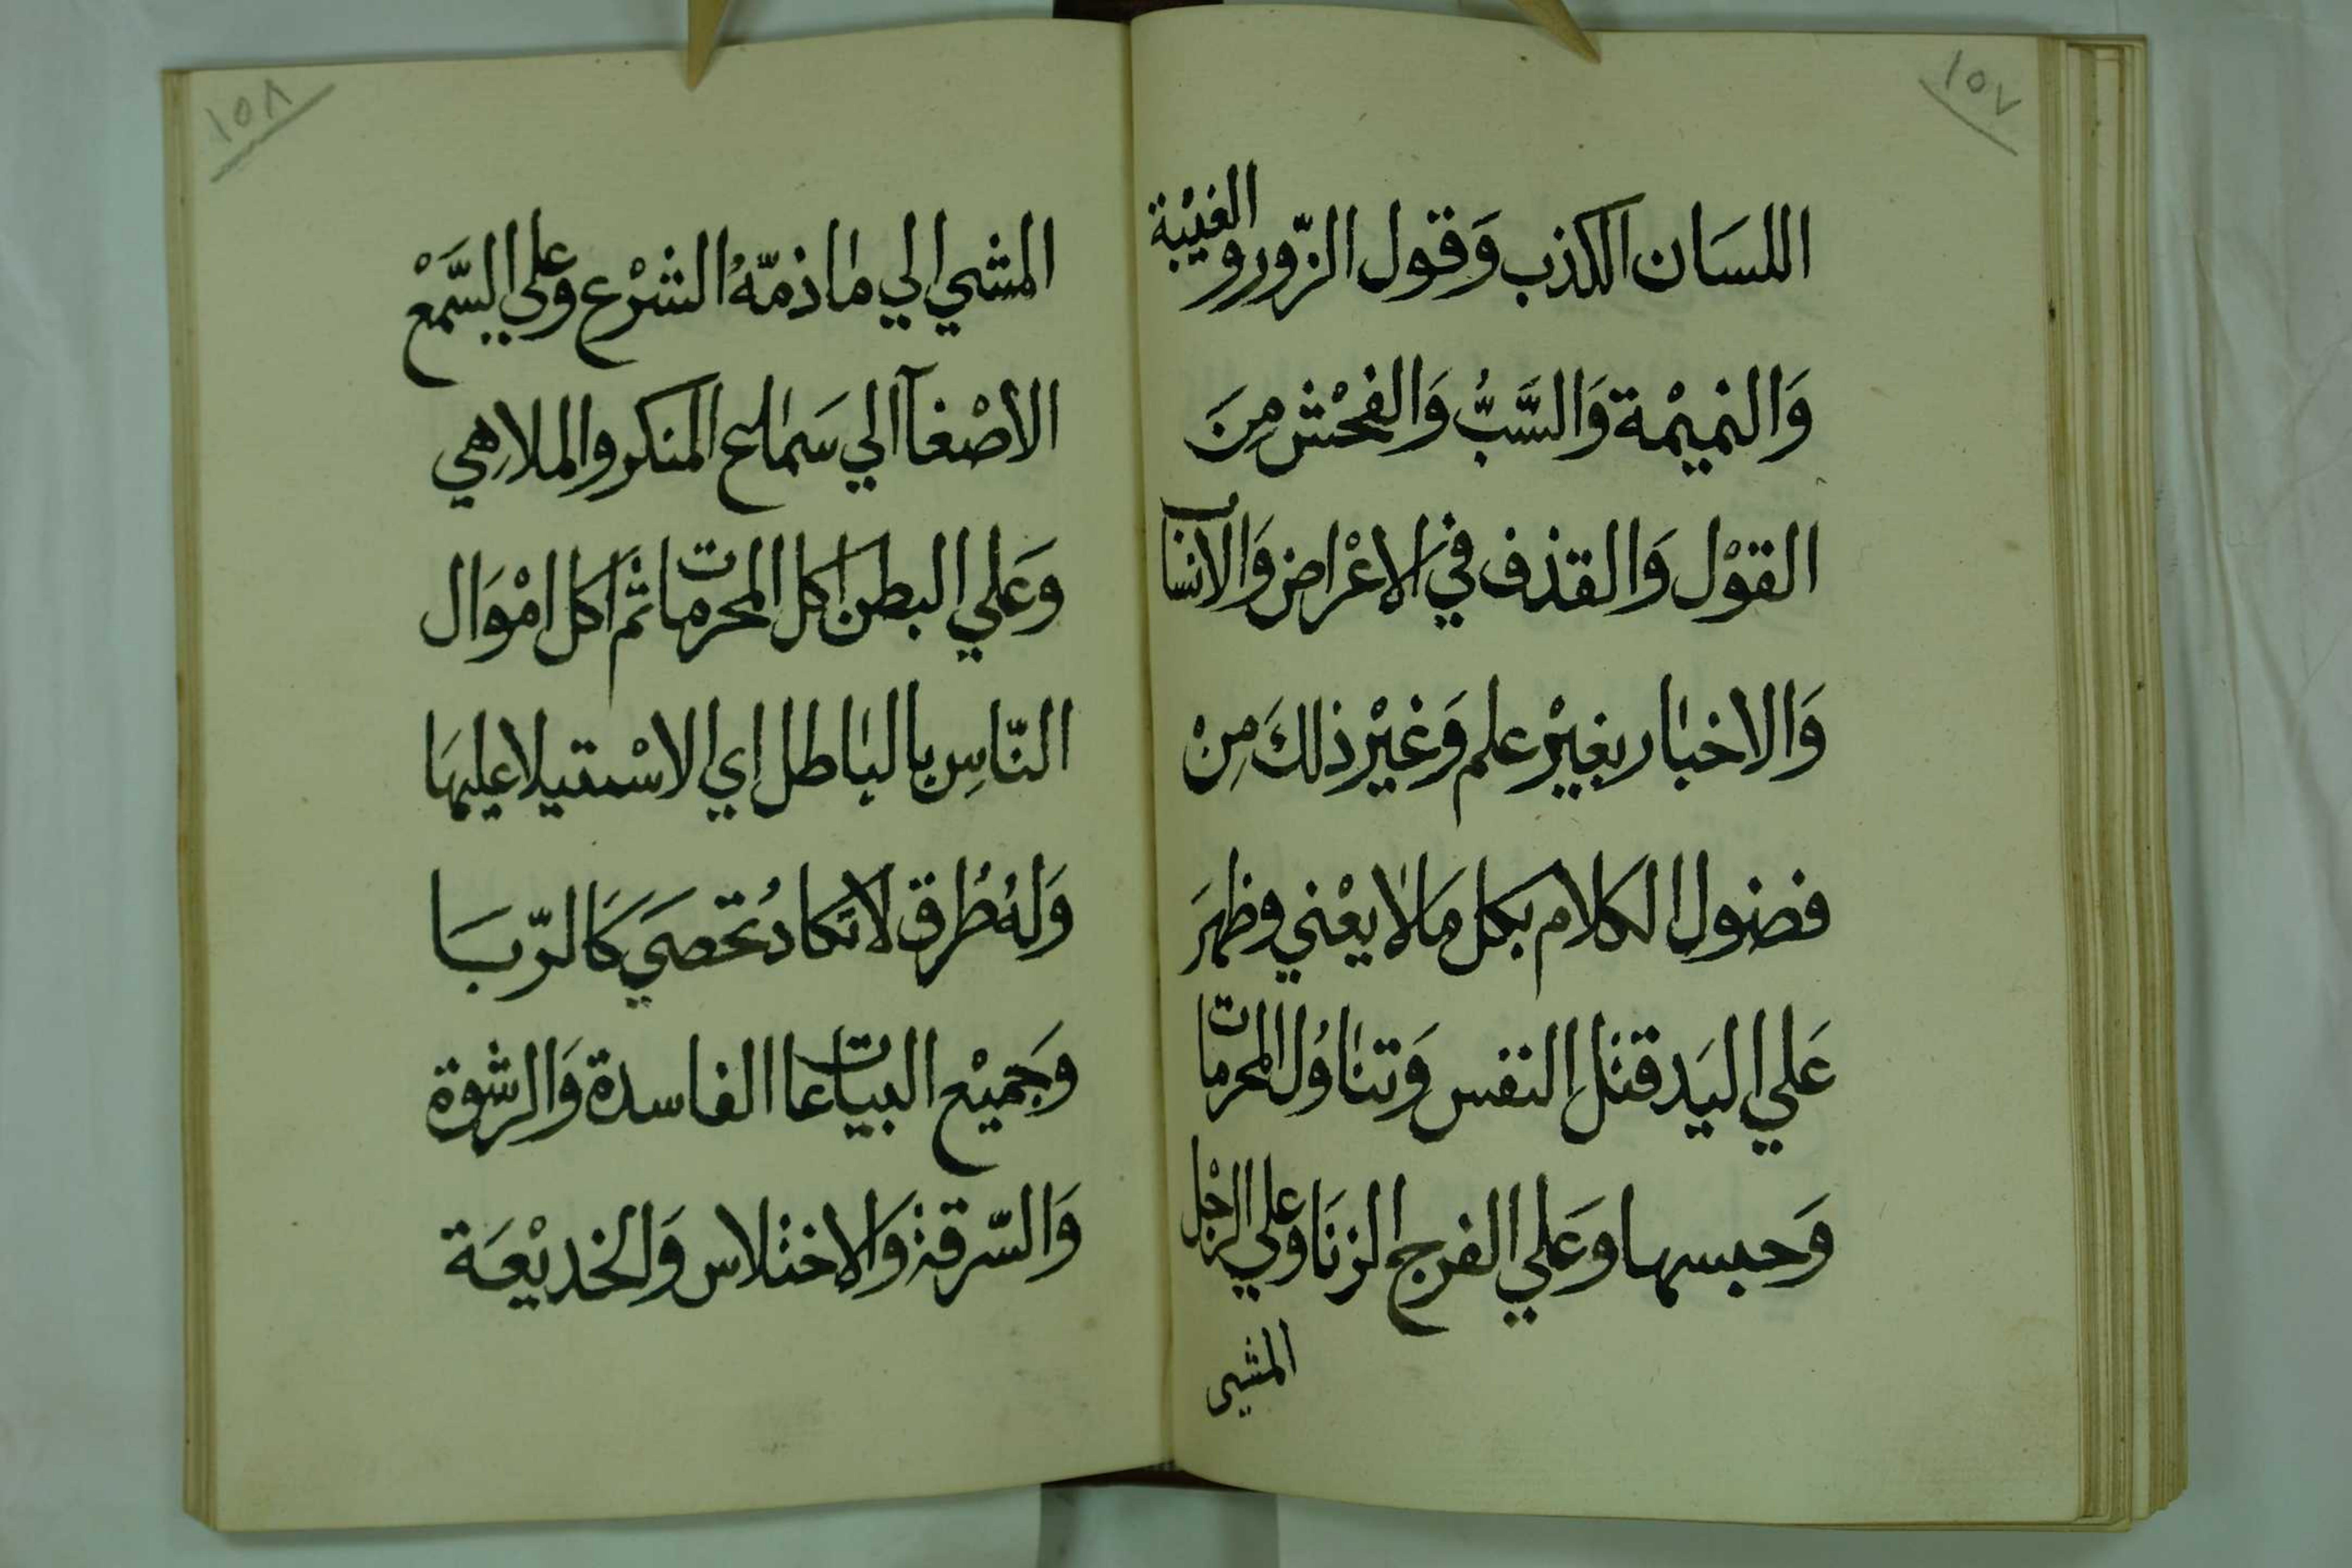 ١٥٧
اللسَان الكذب وَقول الزّور والغيْبة
وَالنميْمة وَالسَّبُّ وَالفحْش مِنَ
القوْل وَالقذف في الاعْراض وَالانساب
وَالاخبار بغيْر علم وَغيْر ذلكَ مِنْ
فضول الكلام بكل مَا لا يعْني وظهرَ
عَلي اليَد قتل النفس وَتناوُل المحرمات
وَحبسها وَعَلي الفرج الزنَا وعَلي الرّجْل
المشي
١٥٨
المشي الي ما ذمّهُ الشرْع وعَلي السَّمْعْ
الأصْغآ الي سَماع المنكر والملاهِي
وَعَلي البطن اكل المحرمات ثمّ اكل امْوَال
النّاسِ بالباطل اي الاسْتيلا عليهَا
وَلهُ طُرق لا تكاد تُحصَي كَالرّبَا
وَجَميْع البياعات الفاسدة وَالرشوة
وَالسّرقة وَالاختلاس وَالخديْعَة